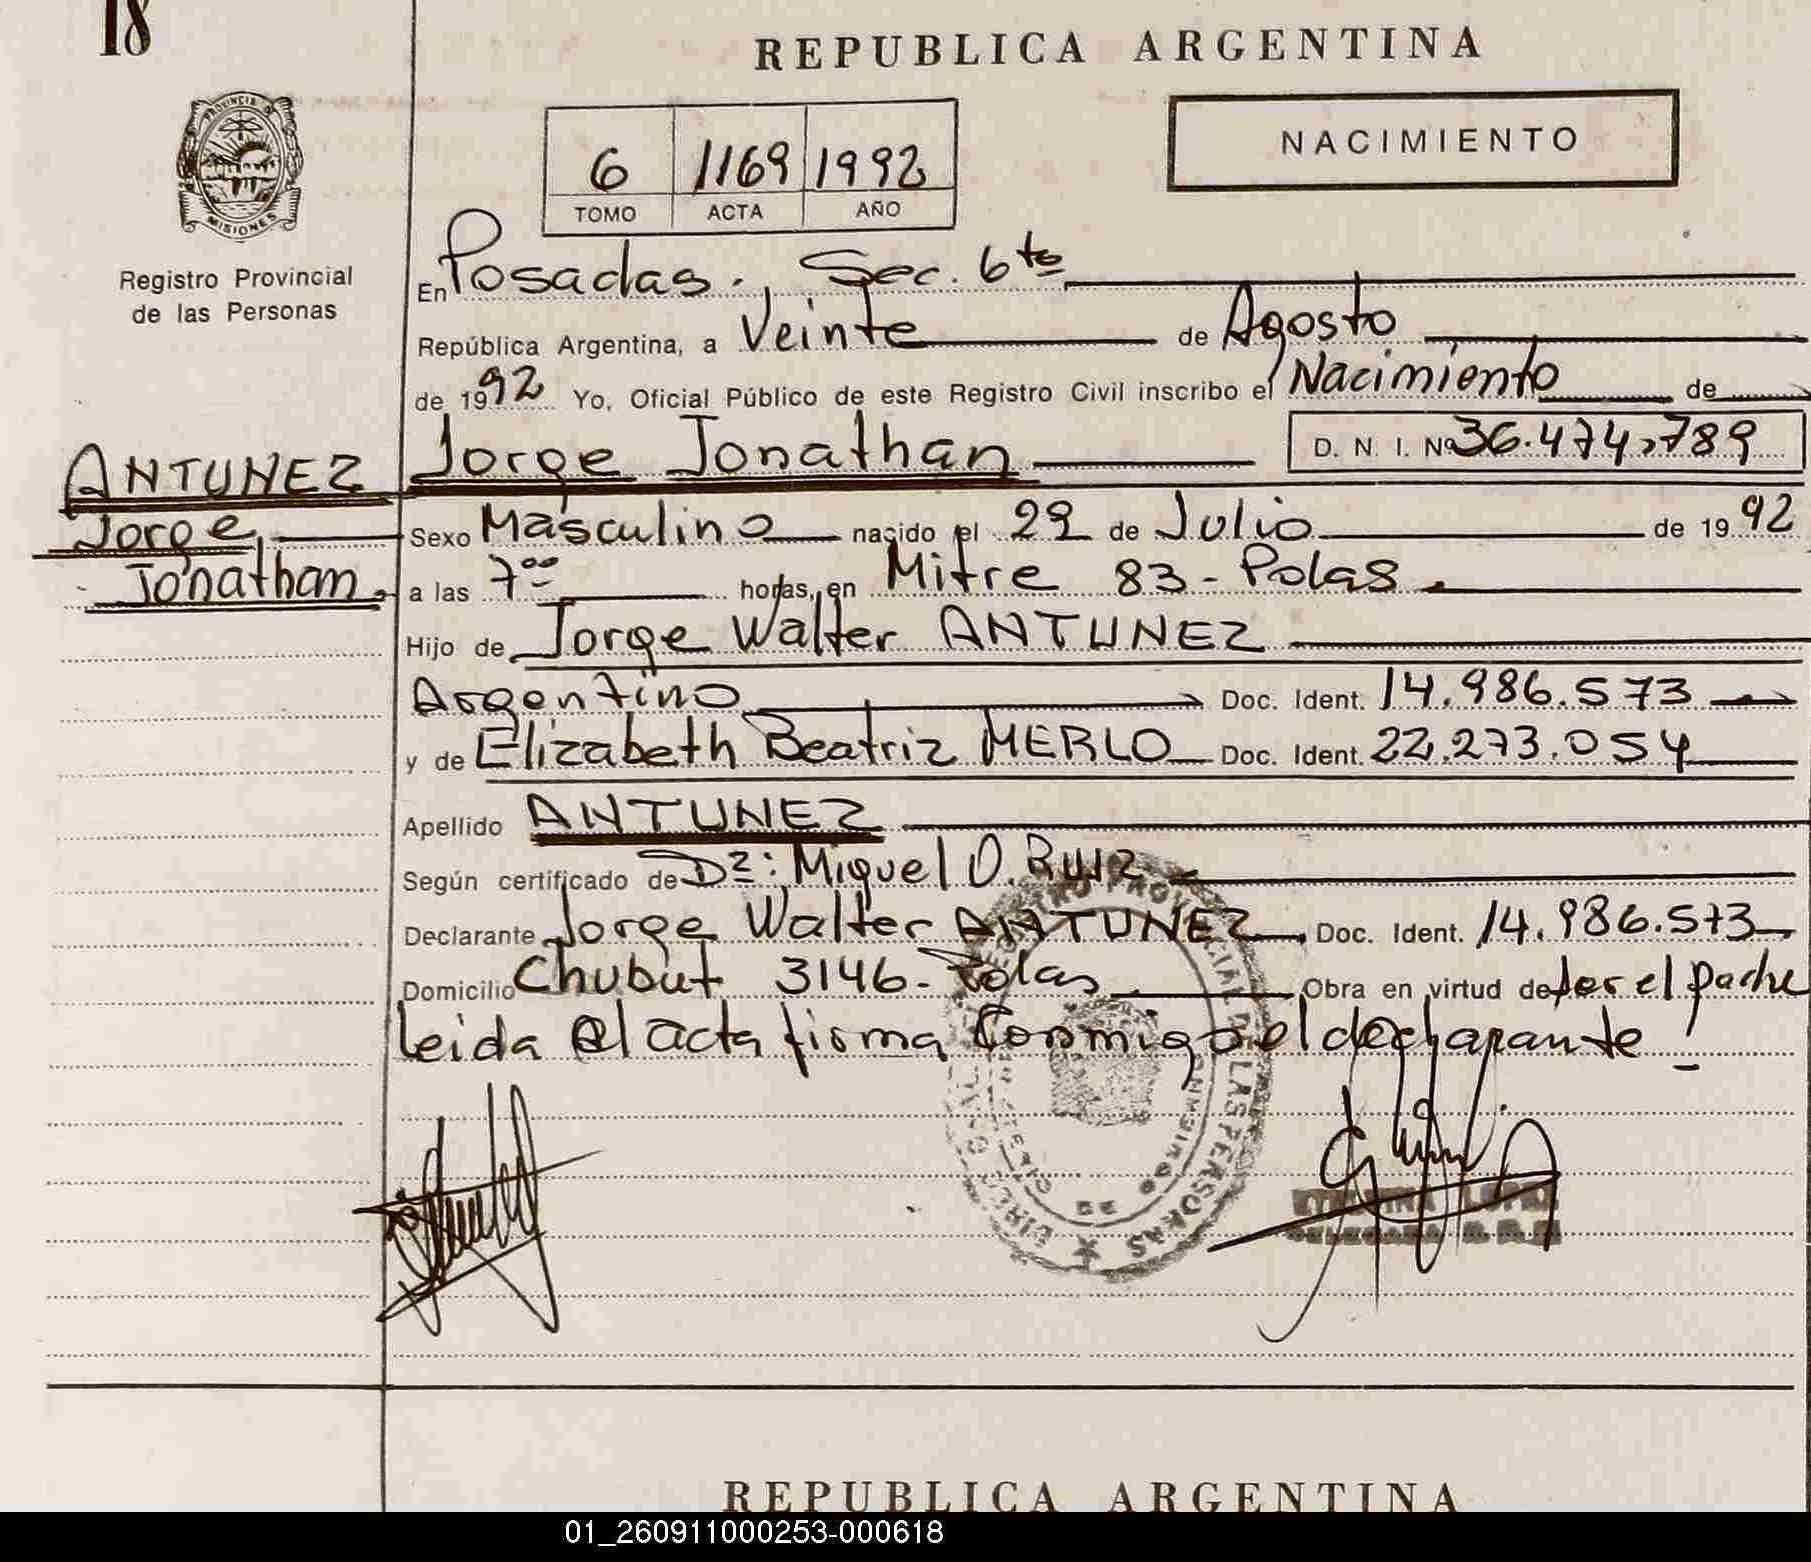 18
REPUBLICA ARGENTINA
PROVINCIA DE
MISIONES
Registro Provincial
de las Personas
6 1169 1992
TOMO ACTA AÑO
NACIMIENTO
En Posadas., Sec. 6ta
República Argentina, a Veinte de Agosto
de 1992 Yo, Oficial Público de este Registro Civil inscribo el Nacimiento de
ANTUNEZ Jorge Jonathan D. N. I. Nº 36.474.789
Jorge Sexo Masculino nacido el 29 de Julio de 1992
Jonathan. a las 7ºº horas, en Mitre 83-Pdas.
Hijo de Jorge Walter ANTUNEZ
Argentino Doc. Ident. 14.986.573
y de Elizabeth Beatriz MERLO Doc. Ident. 22.273.054
Apellido ANTUNEZ
Según certificado de Dr: Miguel O. Ruiz
Declarante Jorge Walter ANTUNEZ. Doc. Ident. 14.986.573
Domicilio Chubut 3146-Pdas Obra en virtud de ser el padre
leida el acta firma conmigo el declarante
REPUBLICA ARGENTINA
01_260911000253-000618